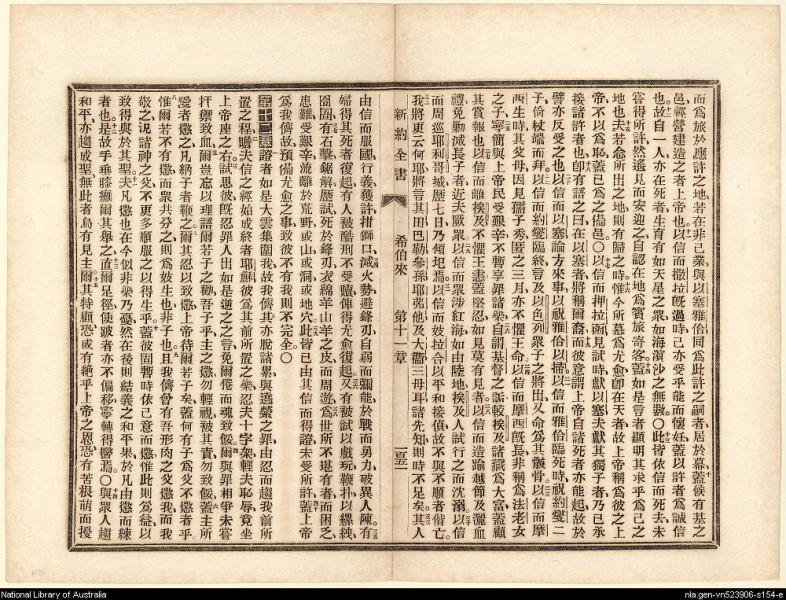 而爲旅於應許之地若在非己業與以塞雅各同爲此許之嗣者居於幕蓋候有基之
邑經營建造之者上帝也以信而撒拉旣過時己亦受乎能而懷妊蓋以許者爲誠信
也故自一人亦在死者生育有如天星之衆如海濵沙之無數○此皆依信而死去未
嘗得所許然遙見而安迎之自認在地爲賓旅寄客蓋如是言者顯明其求乎爲己之
地也夫若念所出之地則有歸之時惟今所慕爲尤愈卽在天者故上帝稱爲彼之上
帝不以爲恥蓋已爲之備邑○以信而
接諸許者也卽有語之曰在以塞者將稱爾裔而彼意謂上帝自諸死者亦能起故於
譬亦反受之也以信而以塞論方來事以祝雅各以掃以信而雅各臨死時祝約燮二
子倚杖端而拜以信而約燮臨終言及以色列衆子之將出又命爲其骸骨以信而摩
西生時其父母因見孺子秀匿之三月亦不懼王命以信而摩西旣長非稱爲法老女
之子寧簡與上帝民受艱辛不暫享罪諸樂自謂基督之詬較埃及諸藏爲大富蓋顧
其賞報也以信而離埃及不懼王恚蓋堅忍如見莫有見者以信而造踰越節及灑血
禮免勦滅長子者近夫厥衆以信而衆涉紅海如由陸地埃及人試行之而沈溺以信
而周巡耶利哥城歷七日乃傾圯焉以信而妓拉合以平和接偵故不與不順者偕亡
我將更云何耶將言其田巴勒參孫耶弗他及大衞三母耳諸先知則時不足矣其人
新約全書
希伯來
第十一章
由信而服國行義獲許拑獅口滅火勢避鋒刃自弱而彌能於戰而勇力破異人陳有
婦得其死者復起有人被酷刑不受贖俾得尤愈復起又有被試以戲玩鞭扑以縲絏
囹圄有石擊鋸解歷試死於鋒刃衣綿羊山羊之皮而周遊爲世所不堪有者而困乏
患難受艱辛流離於荒野或山或洞或地穴此皆已由其信而得證未受所許蓋上帝
爲我儕故預備尤愈之事致彼不有我則不完全○
第十二章證者如是大雲集圍我故我儕其亦脫諸累與迭縈之罪由忍而趨我前所
置之程瞻夫信之經始成終者耶穌彼爲其前所置之樂忍夫十字架輕夫恥辱竟坐
上帝座之右試思彼旣忍罪人出如是逆之之言免爾倦而魂致餒爾與罪相爭未嘗
扞禦致血爾豈忘以理語爾若子之勸吾子乎主之懲勿輕視被其責勿致餒蓋主所
愛者懲之凡納子者鞭之爾其忍以致懲上帝待爾若子矣蓋何有子爲父不懲者乎
惟爾若不有懲而衆共分之則爲妓生也非子也且我儕曾有吾形肉之父懲我而我
敬之况諸神之父不更多順服之以得生乎蓋彼固暫時依己意而懲惟此則爲益以
致得與於其聖夫凡懲也在今似非樂乃憂然在後則結義之和平果於凡由懲而練
者也是故乎垂膝癱爾其舉之直爾足徑使跛者亦不偏移寧轉得醫焉○與衆人趨
和平亦趨成聖無此者烏有見主爾其特顧恐或有絕乎上帝之恩恐有苦根萌而擾
National Library of Australia
nla.gen-vn523906-s154-e